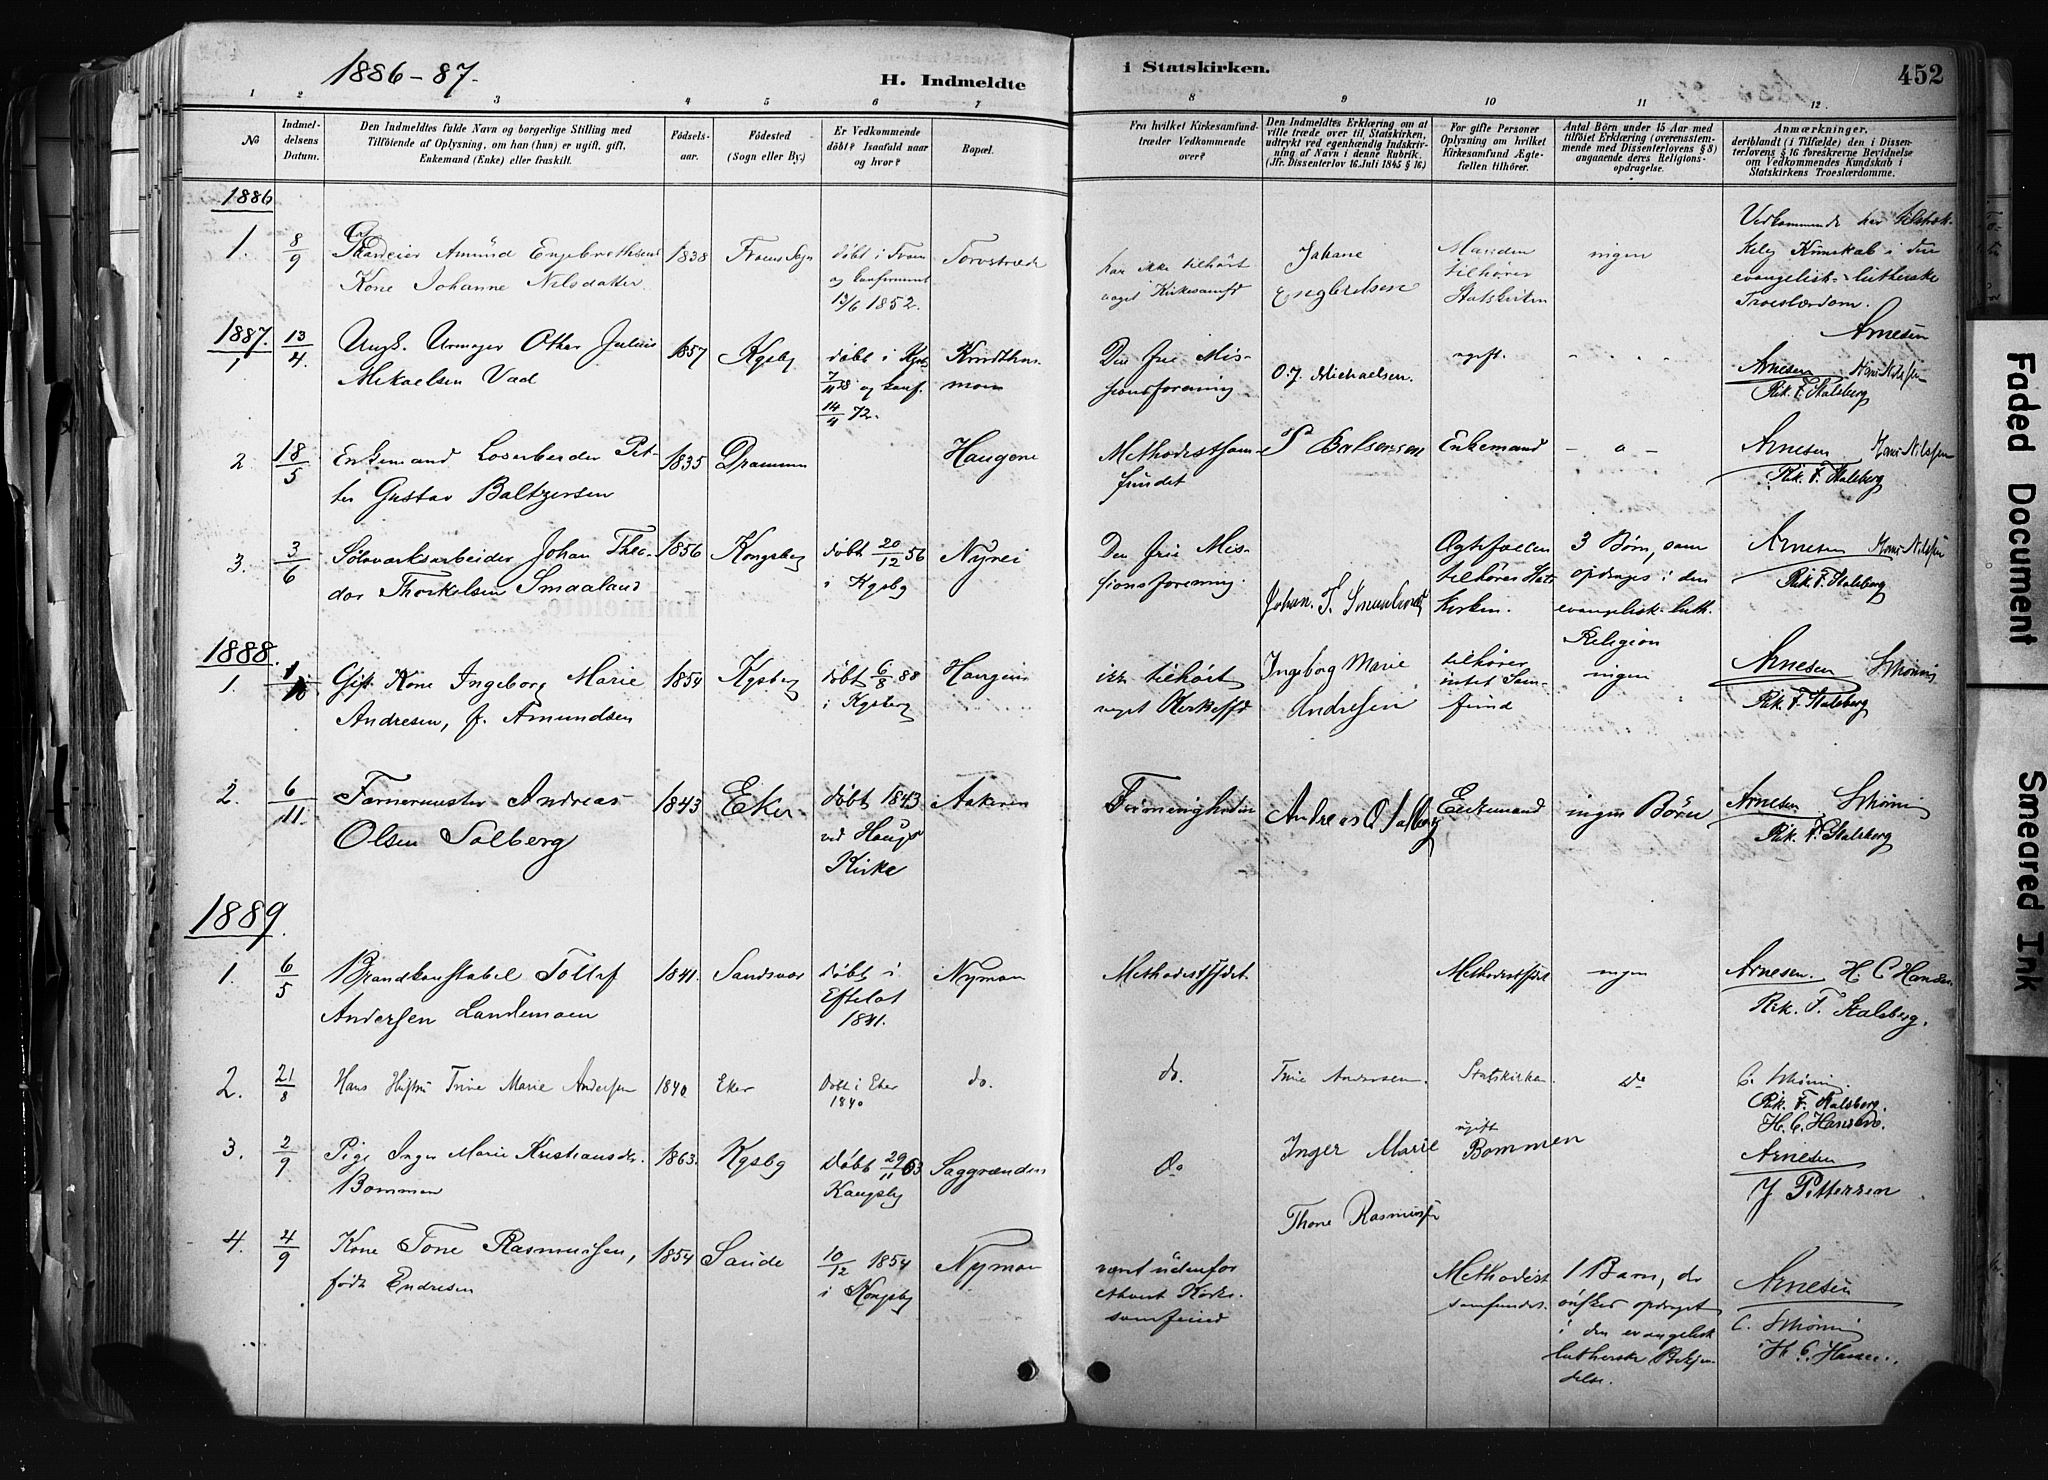 1886-87.
H. Indmeldte
i Statskirken.
452
1 2 3 4 5 6 7 8 9 10 11 12.
No
Indmel-
delsens
Datum.
Den Indmeldtes fulde Navn og borgerlige Stilling med
Tilföiende af Oplysning, om han (hun) er ugift, gift,
Enkemand (Enke) eller fraskilt.
Födsels-
aar.
Födested
(Sogn eller By.)
Er Vedkommende
döbt? Isaafald naar
og hvor?
Bopæl.
Fra hvilket Kirkesamfund
træder Vedkommende
over?
Den Indmeldtes Erklæring om at
ville træde over til Statskirken,
udtrykt ved egenhændig Indskriv-
ning af Navn i denne Rubrik.
(Jfr. Dissenterlov 16 Juli 1845 § 16)
For gifte Personer
Oplysning om hvilket
Kirkesamfund Ægte-
fællen tilhörer.
Antal Börn under 15 Aar med
tilföiet Erklæring (overensstem-
mende med Dissenterlovens § 8)
angaaende deres Religions-
opdragelse.
Anmærkninger,
deriblandt (i Tilfælde) den i Dissen-
terlovens § 16 foreskrevne Bevidnelse
om Vedkommendes Kundskab i
Statskirkens Troeslærdomme.
1886
1. 8/9
Amund Engebrethsens
Kone Johanne Nilsdatter
1838
døbt i
og konfirmeret
13/6 1852.
Torvstræde
har ikke tilhørt
noget Kirkesamfd
Johane
Engbretsen
Manden
tilhører
Statskirken
ingen
Vedkommende har tilstræk-
kelig Kundskab i den
evangelisk-lutherske
Troeslærdom.
Arnesen
1887.
1 13/4
Ungk. Urmager Othar Julius
Mikaelsen Vad
1857
Kgsbg
døbt i Kgsb
og konf.
14/4 72.
Den frie Mis-
sionsforening
O.J. Michaelsen.
ugift.
Arnesen Hans Nilssen
Rik. F. Stalsberg
2 18/5
Enkemand Losarbeider Pet-
ter Gustav Baltzersen
1835
Drammen
Haugene
Methodistsam-
fundet
Enkemand
- 0 -
Arnesen Hans Nilssen
Rik. F. Stalsberg
3. 3/6
Sølvverksarbeider Johan Theo-
dor Thorkelsen Smaaland
1856
Kongsberg
døbt 20/12 56
i Kgsbg
Nyvei
Den frie Mis-
sionsforening.
Johan. T. Smaaland
Ægtefællen
tilhører Stats
Kirken.
3 Børn, som
opdrages i den
evangelisk-luth.
Religion
Arnesen Hans Nilssen
Rik. F. Stalsberg
1888.
1. 1/10
Gift Kone Ingeborg Marie
Andresen, f. Amundsen
1854
Kgsberg
døbt 6/8 88
i Kgsberg
Haugene
ikke tilhørt
noget Kirkesfd
Ingeborg Marie
Andresen
tilhører
intet Sam-
fund
ingen
Arnesen S. Moning
Rik. F. Stalsberg
2. 6/11
Farvermester Andreas
Olsen Solberg
1843
Eker
døbt 1843
ved Haugs
Kirke
Frimenigheden
Andreas O Solberg
Enkemand
ingen Børn
Arnesen
Rik. F. Stalsberg
1889.
1. 6/5
Brandkonstabel Tollef
Andersen Landemoen
1841.
Sandsvær
døbt i
Efteløt
1841.
Nymoen
Methodistsfdet.
Methodistsfdet
ingen
Arnesen. H. C. Hansen
Rik. F. Stalsberg.
2. 21/8
Hans Hustru Trine Marie Andersen
1840
Eker
Døbt i Eker
1840
do.
do.
Trine Andersen.
Statskirken
Do
Rik. F. Stalsberg.
H. C. Hansen.
3. 2/9
Pige Inger Marie Kristiansdr.
Bommen
1863.
Kgsbg
døbt 29/11 63
Kongsbg
Saggrænden
do
Inger Marie Bommen
ugift
Arnesen
J Pettersen
4. 4/9
Kone Tone Rasmussen,
født Endresen
1854
10/12 1854
i Kongsbg
Nymoen
været udenfor
ethvert Kirke-
samfund
Thone Rasmussen
Methodist
samfundet.
1 Barn, de
ønsker opdraget
i den evangelisk
lutherske Bekjen-
delse.
Arnesen
H. C. Hansen.
Faded Document
Smeared Ink